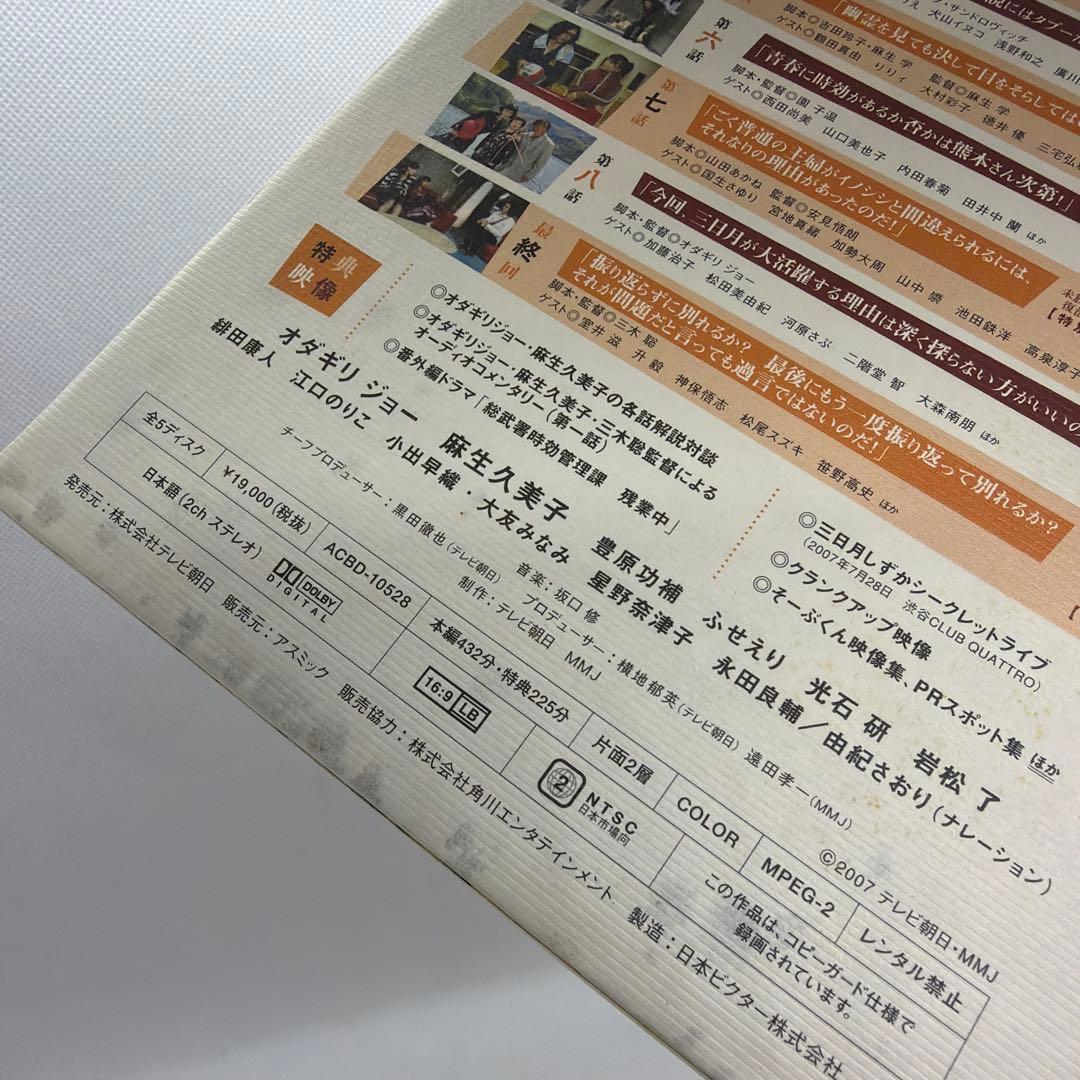 説にはタブーが
プ・サンドロヴィッチ
りえ 犬山イヌコ 浅野和之 廣川
「幽霊を見ても決して目をそらしては
脚本◎吉田玲子・麻生 学 監督◎麻生 学
ゲスト◎鶴田真由 りりィ 大村彩子 徳井 優 三宅弘
第六話
「青春に時効があるか否かは熊本さん次第!」
脚本・監督◎園 子温
ゲスト◎西田尚美 山口美也子 内田春菊 田井中 蘭 ほか
第七話
「ごく普通の主婦がイノシシと間違えられるには、
それなりの理由があったのだ!」
脚本◎山田あかね 監督◎安見悟朗
ゲスト◎国生さゆり 宮地真緒 加勢大周 山中 崇 池田鉄洋 高泉淳子
第八話
「今回、三日月が大活躍する理由は深く探らない方がいいの
脚本・監督◎オダギリ ジョー
ゲスト◎加藤治子 松田美由紀 河原さぶ 二階堂 智 大森南朋 ほか
最終回
「振り返らずに別れるか? 最後にもう一度振り返って別れるか?
それが問題だと言っても過言ではないのだ!」
脚本・監督◎三木 聡
ゲスト◎室井 滋 升 毅 神保悟志 松尾スズキ 笹野高史 ほか
特典
映像
◎オダギリジョー・麻生久美子の各話解説対談
◎オダギリジョー・麻生久美子・三木聡監督による
オーディオコメンタリー(第一話)
◎番外編ドラマ「総武署時効管理課 残業中」
◎三日月しずかシークレットライブ
(2007年7月28日 渋谷CLUB QUATTRO)
◎クランクアップ映像
◎そーぶくん映像集、PRスポット集 ほか
オダギリ ジョー 麻生久美子 豊原功補 ふせえり 光石 研 岩松 了
緋田康人 江口のりこ 小出早織・大友みなみ 星野奈津子 永田良輔/由紀さおり(ナレーション)
音楽:坂口 修
チーフプロデューサー:黒田徹也(テレビ朝日) プロデューサー:横地郁英(テレビ朝日) 遠田孝一(MMJ)
制作:テレビ朝日 MMJ
©2007 テレビ朝日・MMJ
全5ディスク ¥19,000(税抜) ACBD-10528 本編432分・特典225分 片面2層 COLOR MPEG-2 レンタル禁止
日本語(2ch ステレオ) DOLBY DIGITAL 16:9 LB 2 NTSC 日本市場向
この作品は、コピーガード仕様で
録画されています。
発売元:株式会社テレビ朝日 販売元:アスミック 販売協力:株式会社角川エンタテインメント 製造:日本ビクター株式会社